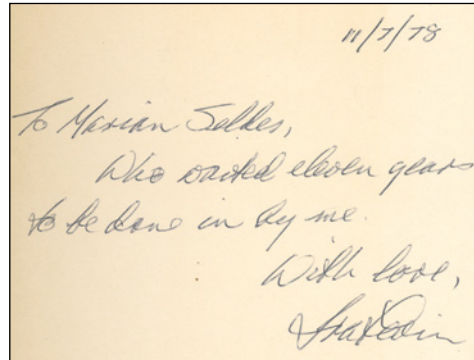 11/7/78
To Marian Seldes,
Who waited eleven years
to be done in by me.
With love,
Ira Levin